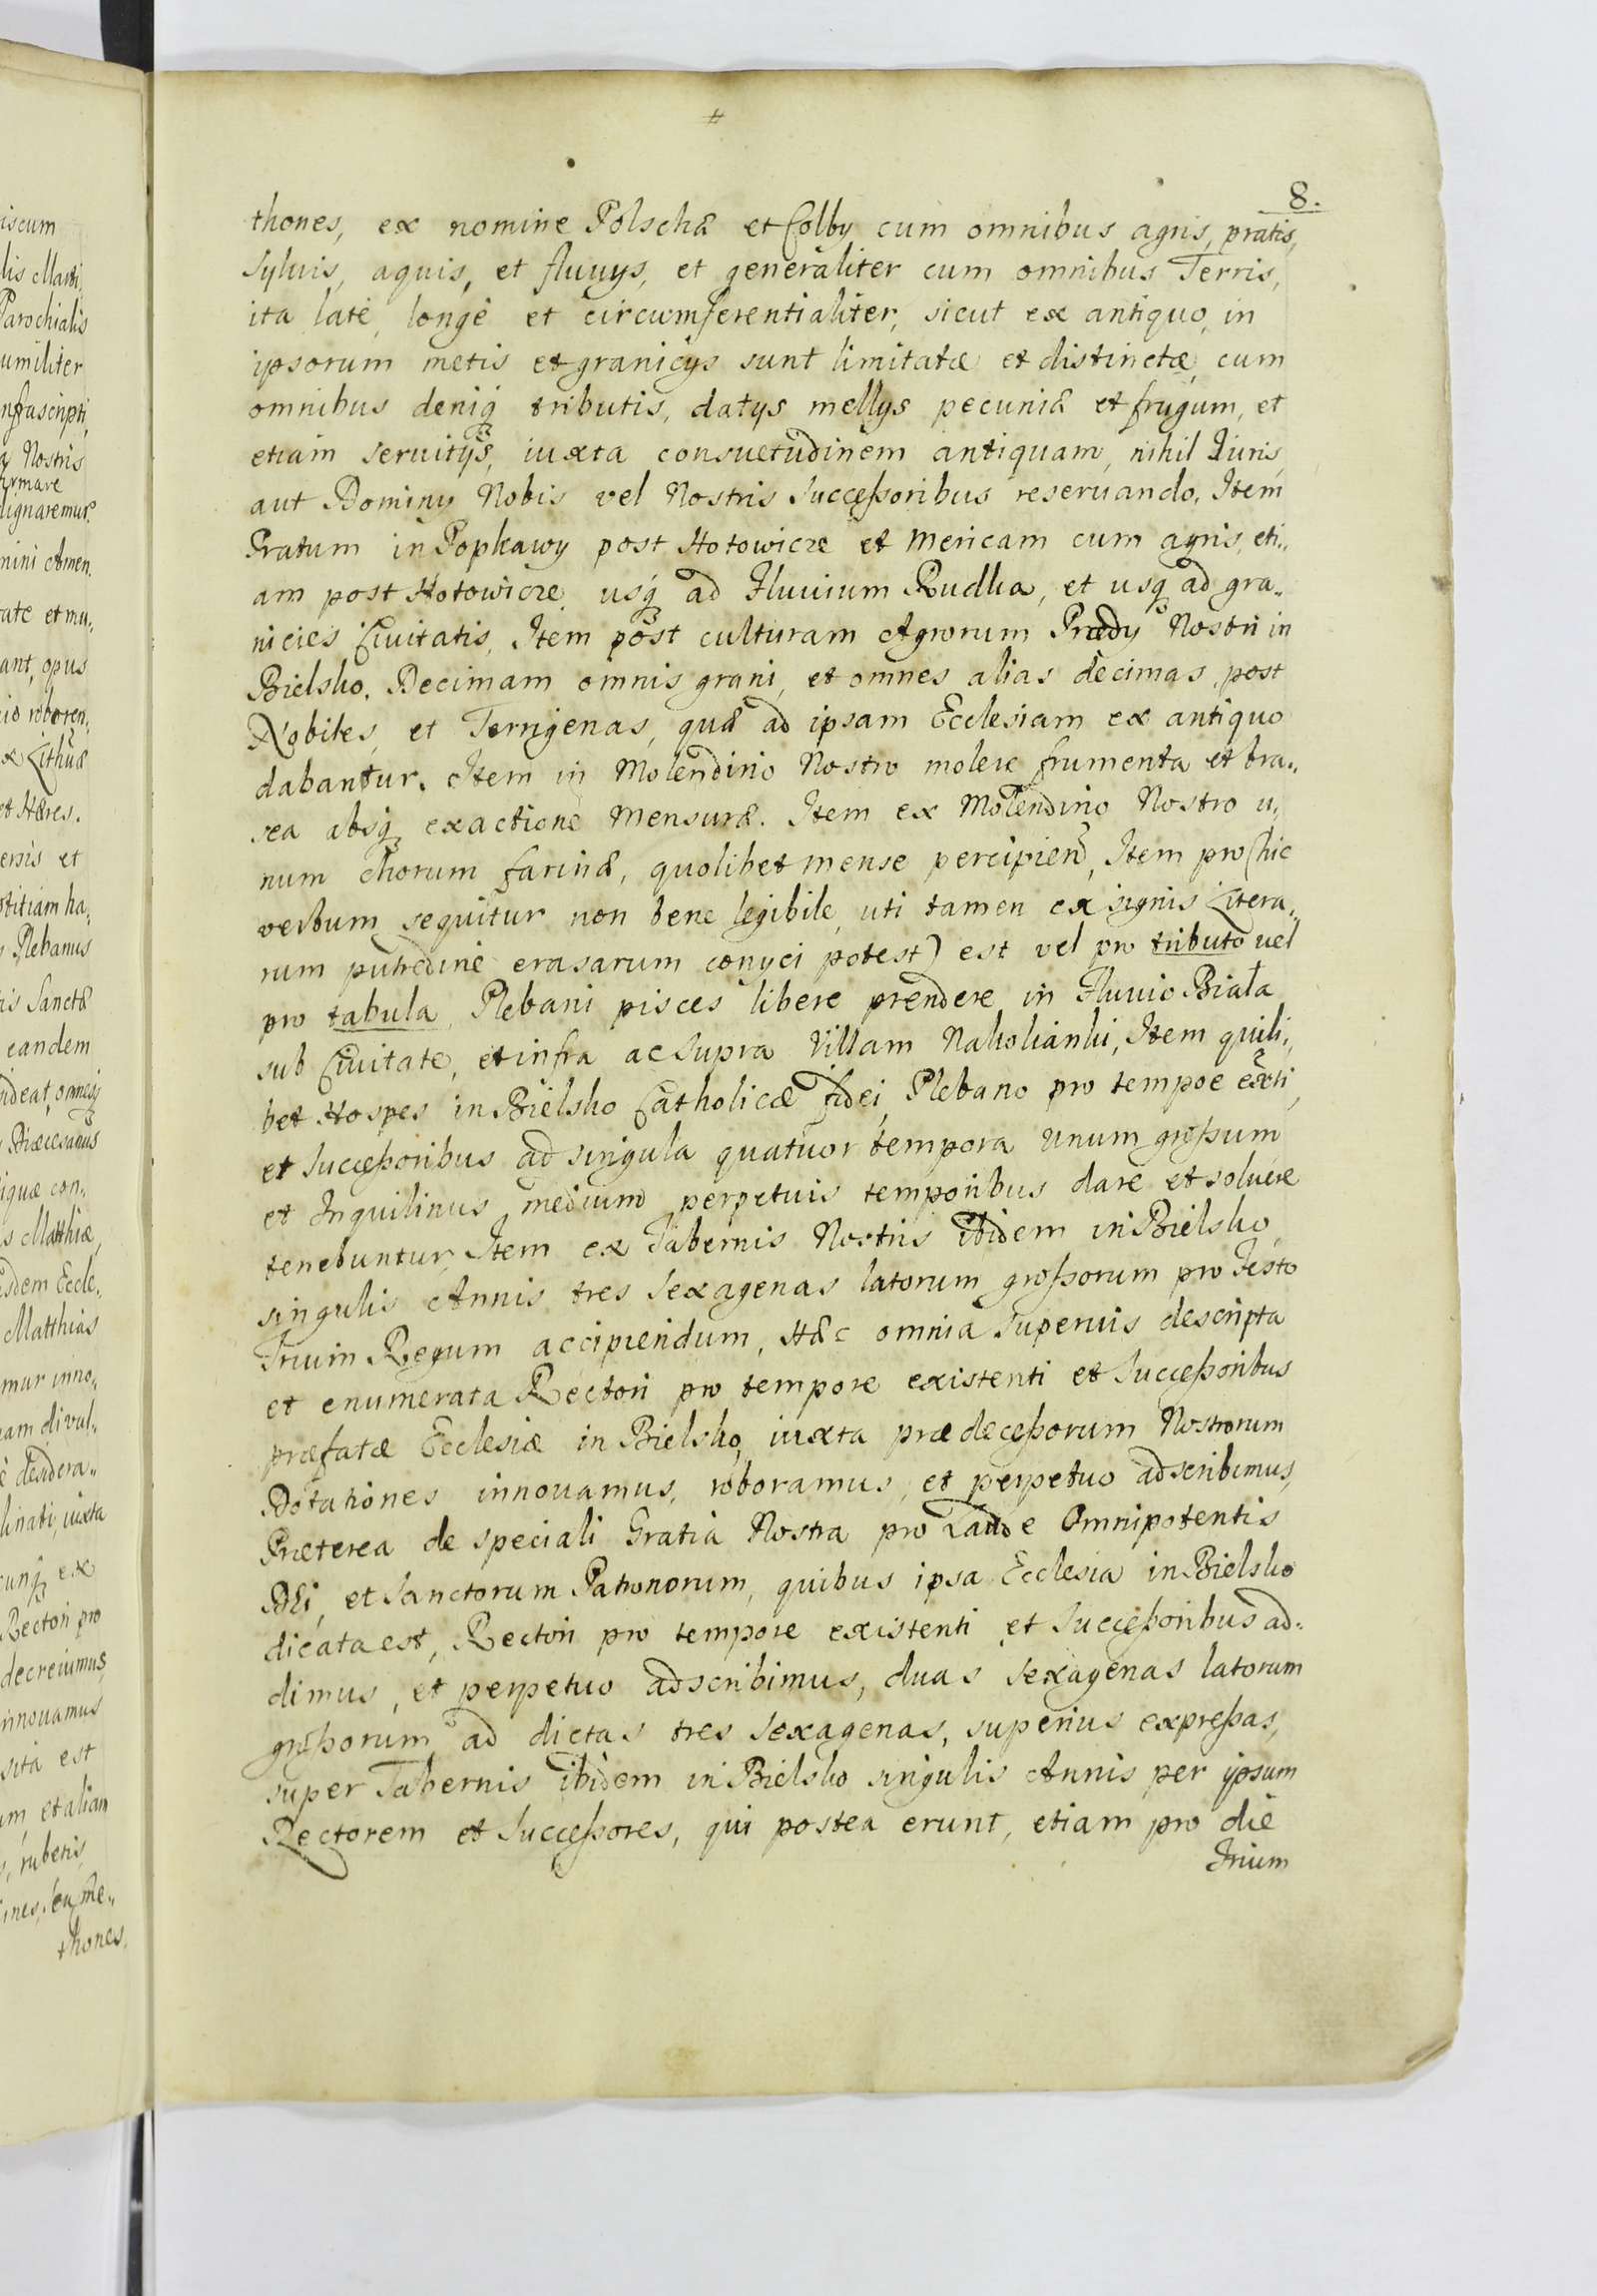 8.
thones, ex nomine Polschæ et Colby cum omnibus agris, pratis,
Sylvis, aquis, et fluvys, et generaliter cum omnibus Terris,
ita late, longè et circumferentialiter, sicut ex antiquo, in
ipsorum metis et granicys sunt limitatæ et distinctæ, cum
omnibus deniq tributis, datys mellys pecuniæ et frugum, et
etiam servitijs, iuxta consuetudinem antiquam, nihil Iuris
aut Dominy Nobis vel Nostris Successoribus reservando. Item
Pratum in Popkawy post Hotowicze et Mericam cum agris, eti„
am post Hotowicze usq ad Fluvium Rudka, et usq ad gra„
nicies Civitatis. Item post culturam Agrorum Prædy Nostri in
Bielsko. Decimam omnis grani, et omnes alias decimas, post
Nobiles, et Terrigenas, quæ ad ipsam Ecclesiam ex antiquo
dabantur. Item in Molendino Nostro molere frumenta et bra„
sea absq exactione Mensuræ. Item ex Molendino Nostro u„
num Chorum farinæ, quolibet mense percipiend, Item pro (hic
verbum sequitur non bene legibile, uti tamen ex signis Litera„
rum putredine erasarum conyci potest) est vel pro tributo vel
pro tabula, Plebani pisces libere prendere in Fluvio Biała
sub Civitate, et infra ac supra Villam Nakolianki, Item quili„
bet Hospes in Bielsko Catholicæ fidei, Plebano pro tempoe exti,
et Successoribus ad singula quatuor tempora unum grossum
et Inquilinus medium perpetuis temporibus dare et solvere
tenebuntur, Item ex Tabernis Nostris ibidem in Bielsko
singulis Annis tres Sexagenas latorum grossorum pro Festo
Trium Regum accipiendum, Hæc omnia superius descripta
et enumerata Rectori pro tempore existenti et Successoribus
præfatæ Ecclesiæ in Bielsko, iuxta prædecessorum Nostrorum
Dotationes innovamus, roboramus, et perpetuo adscribimus,
Præterea de speciali Gratia Nostra pro Laude Omnipotentis
DEi, et Sanctorum Patronorum, quibus ipsa Ecclesia in Bielsko
dicata est, Rectori pro tempore existenti et Successoribus ad„
dimus, et perpetuo adscribimus, duas Sexagenas latorum
grossorum ad dictas tres Sexagenas, superius expressas,
super Tabernis ibidem in Bielsko singulis Annis per ipsum
Rectorem et Successores, qui postea erunt, etiam pro die
Trium